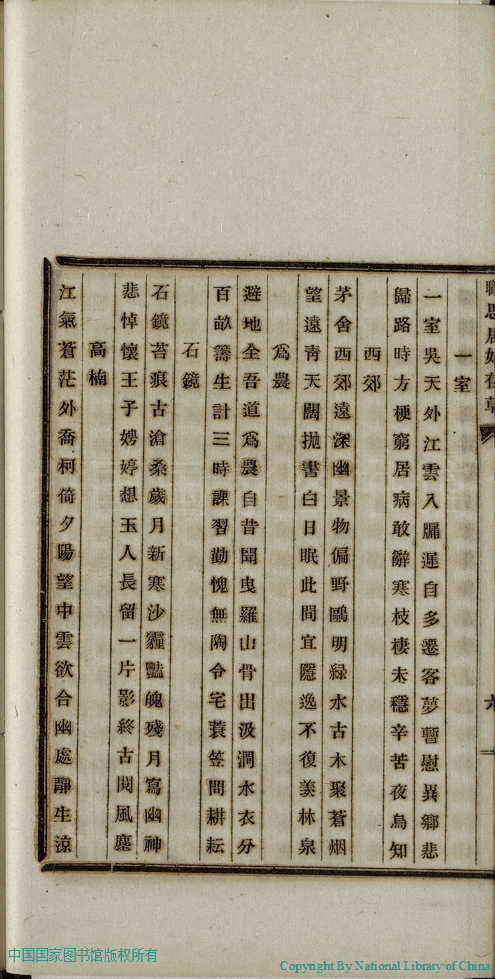 職思居始存草
一室
一室吳天外江雲入牖遲自多遷客夢暫慰異鄉悲
歸路時方梗窮居病敢辭寒枝棲未穩辛苦夜烏知
西郊
茅舍西郊遠深幽景物偏野鷗明綠水古木聚蒼烟
望遠青天闊拋書白日眠此間宜隱逸不復羨林泉
爲農
避地全吾道爲農自昔聞曳羅山骨出汲澗水衣分
百畝籌生計三時課習勤愧無陶令宅蓑笠間耕耘
石鏡
石鏡苔痕古滄桑歲月新寒沙霾豔魄殘月寫幽神
悲悼懷王子娉婷想玉人長留一片影終古閱風塵
高楠
江氣蒼茫外喬柯倚夕陽望中雲欲合幽處靜生涼
中国国家图书馆版权所有
Copyright By National Library of China